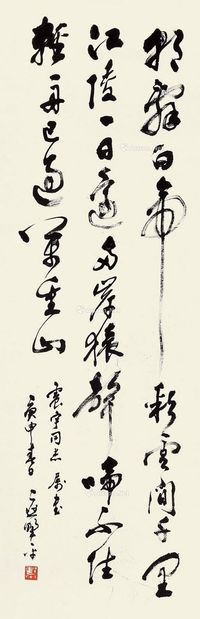 朝辞白帝彩云间千里
江陵一日还两岸猿声啼不住
轻舟已过万重山
震宇同志属书
庚申春日